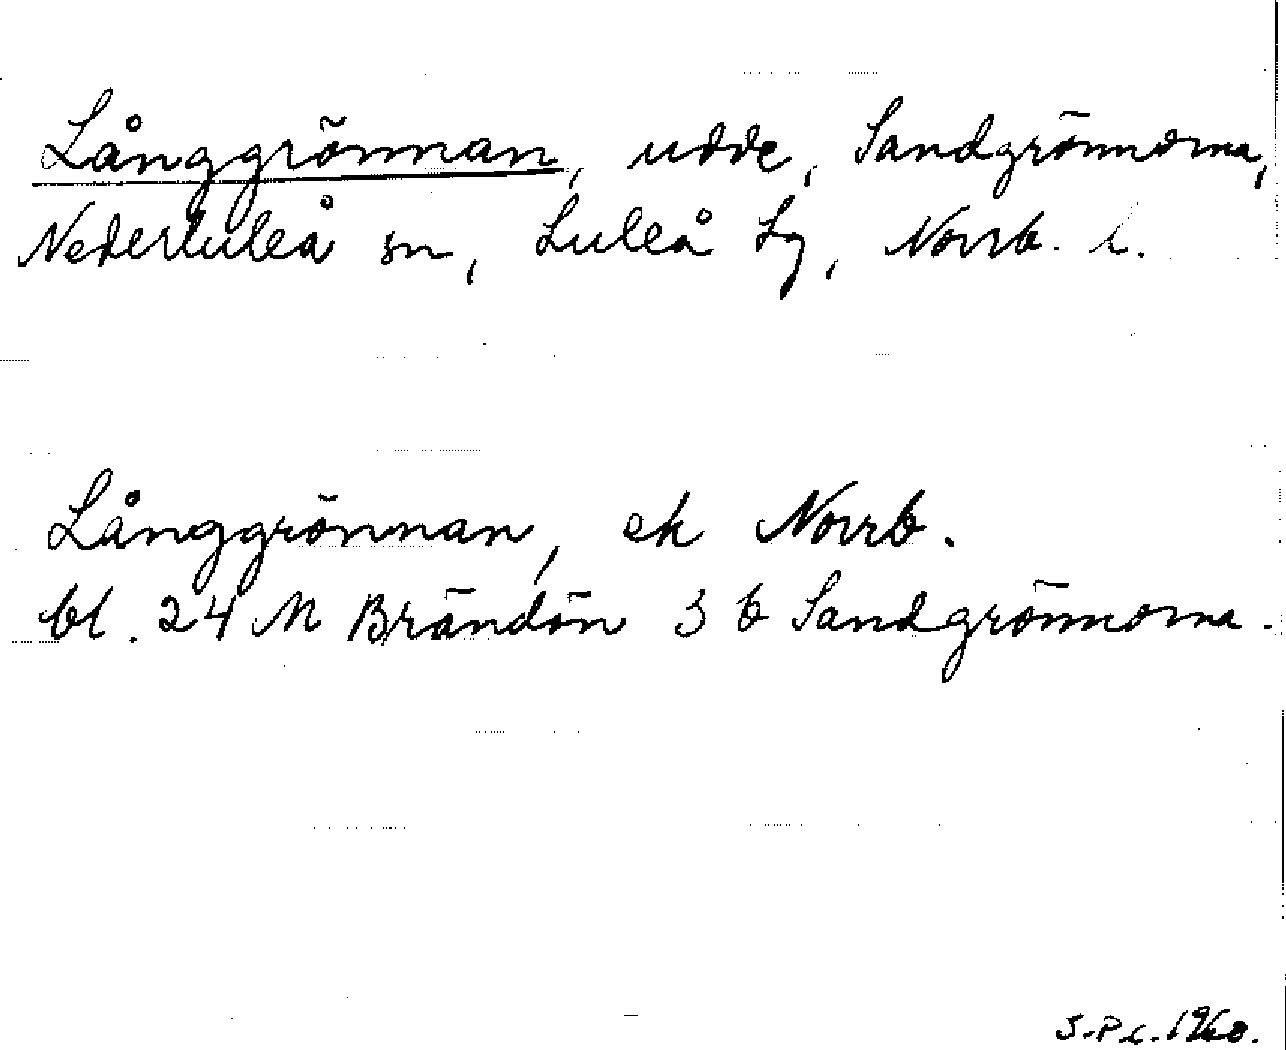 Långgrönnan, udde, Sandgrönnorna,
Nederluleå sn, Luleå tg, Norrb. l.
Långgrönnan, ek Norrb.
bl. 24 M Brändön 3 b Sandgrönnorna.
S.P.L. 1960.